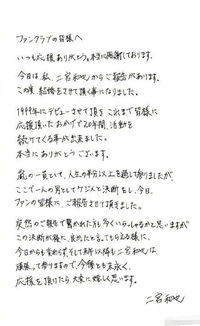 ファンクラブの皆様へ
いつも応援ありがとう。本当に感謝しております。
今日は私、二宮和也からご報告があります。
この度、結婚をさせて頂く事になりました。
1999年にデビューさせて頂き これまで皆様に
応援頂いたおかげで20年間、活動を
続けてくる事が出来ました。
本当にありがとうございます。
嵐の一員として、人生の半分以上を過して参りましたが
ここで一人の男としてケジメと決断をし、今日、
ファンの皆様に、ご報告させて頂きました。
突然のご報告で驚かれた方も多くいらっしゃると思いますが
この決断が後に、良かったと言ってもらえる様に、
今日からも変わらず、そして来年以降も二宮和也は
頑張って参りますので、今後とも末永く、
応援を頂けたら大変に嬉しく思います。
二宮和也